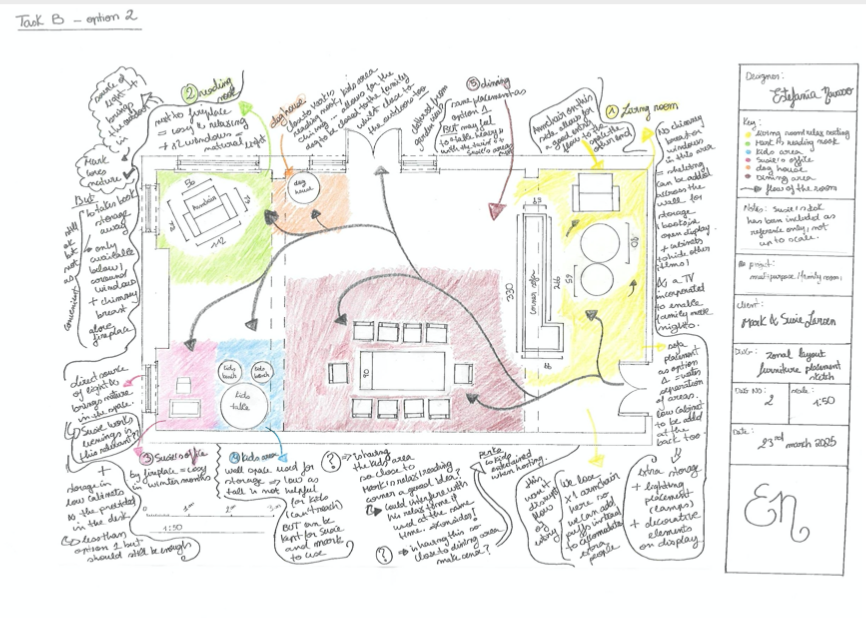 Task B - option 2
source of light + brings the outdoors in
Mark loves nature
② reading nook
next to fireplace
= cozy & relaxing
+ x2 windows =
natural light
BUT
to takes book
storage
away
only
available
below/
around
window
+ chimney
breast
above
fireplace
still
ok but
not as
convenient
dog house
close to Mark's
reading nook, kids area
allows for the
dog to be closed to the family
whilst close to
the outdoors too
⑤ dining
same placement as
option 1
BUT may feel
① Living room
Armchair on this
side allows for
a good entry
flow
No chimney
breast or
windows
in this area
= shelving
can be added
across the
wall for
storage
/books in
open display
+ cabinets
to hide other
items!
a TV
incorporated
to enable
family movie
nights.
sofa
placement
as option
1 = creates
separation
of areas.
Low cabinet
to be added
at the
back too
extra storage
+ lighting
placement
(lamps)
+ decorative
elements
on display
Armchair
112
dog
house
330
corner sofa
216
95
80
65
90
kids
bench
kids
bench
kids
table
direct source
of light &
brings nature
in the space.
Susie works
evenings is
this relevant??
③ Susie's office
by fireplace = cosy
in winter months
+
storage in
low cabinets
in the desk
less than
option 1 but
should still be enough
1:50
④ kids area
wall space used for
storage => low as
tall is not helpful
for kids
(can't reach)
BUT can be
kept for Susie
and Mark
to use
? => is having
the kids area
so close to
Mark's relax/reading
corner a good idea?
could interfere with
his relax time if
used at the same
time.
? => is having this so
close to dining area
make sense?
entertained
when hosting.
this
won't
disrupt
flow
of
entry
We lose
x1 armchair
here so
we can add
puffs instead
to accommodate
extra
people
Designer:
Estefania
Key:
Living room relax seating
Mark's reading nook
kids area
Susie's office
dog house
Dining area
flow of the room
Notes: Susie's desk
has been included as
reference only, not
up to scale.
project:
multi-purpose / family room
Client:
Mark & Susie Larsen
DWG:
zonal layout
furniture placement
sketch
DWG NO:
2
scale:
1:50
Date:
23rd march 2025
En